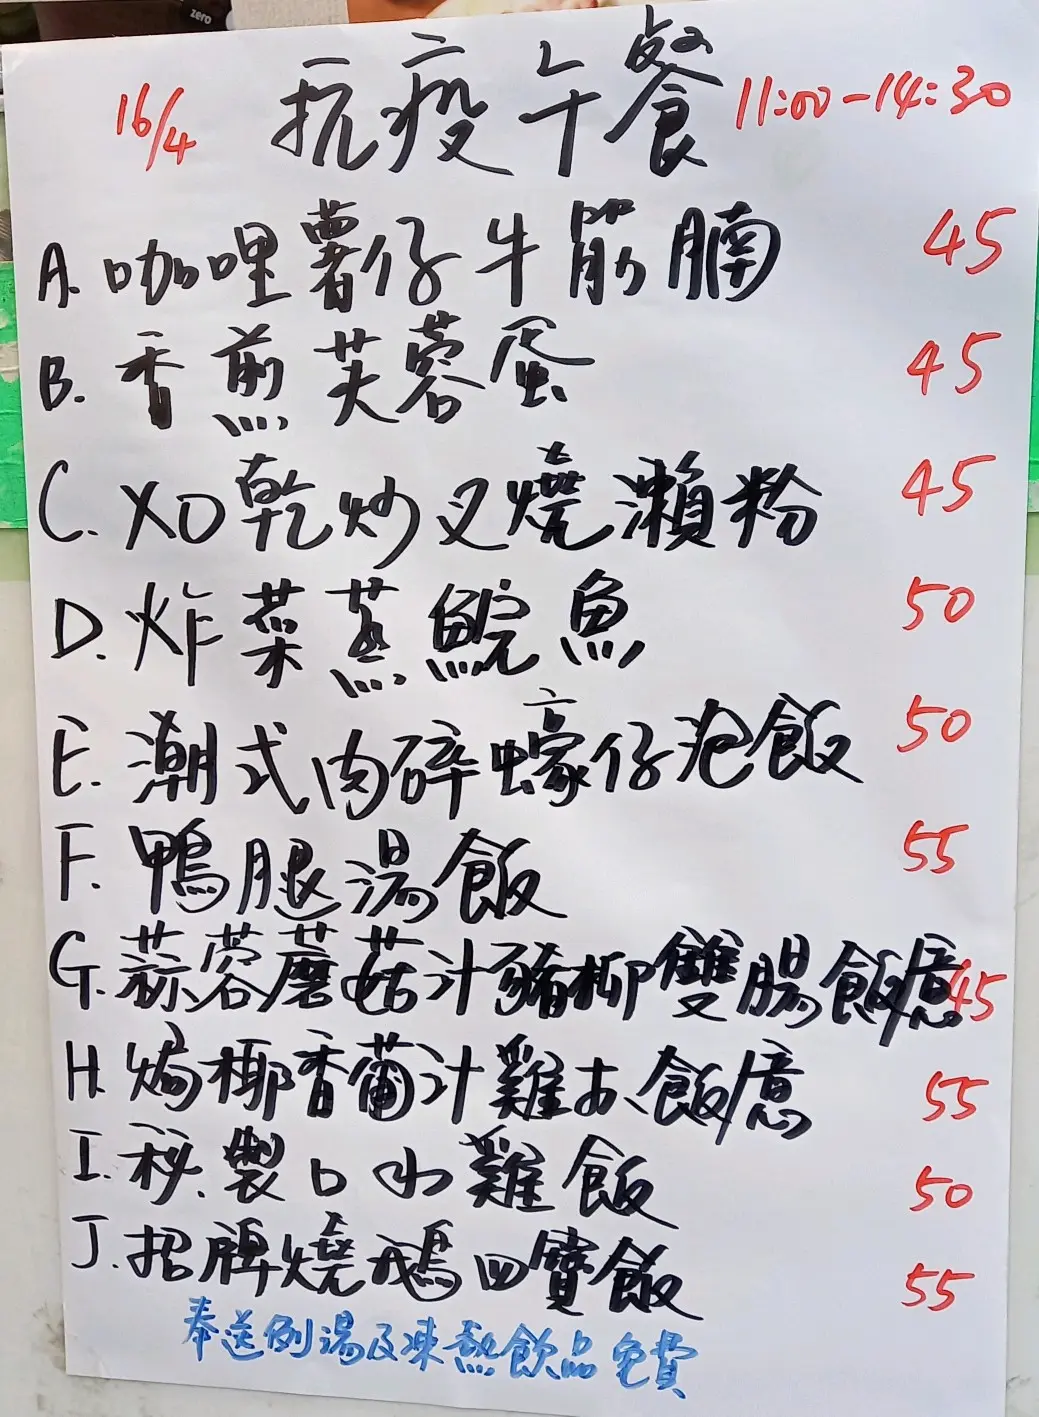 zero
16/4 抗疫午餐 11:00-14:30
A. 咖哩薯仔牛筋腩 45
B. 香煎芙蓉蛋 45
C. XO乾炒叉燒瀨粉 45
D. 炸菜蒸鯇魚 50
E. 潮式肉碎蠔仔泡飯 50
F. 鴨腿湯飯 55
G. 蒜蓉蘑菇汁豬柳雙腸飯/意 45
H. 焗椰香葡汁雞扒飯/意 55
I. 秘製口水雞飯 50
J. 招牌燒鵝四寶飯 55
奉送例湯及凍熱飲品免費